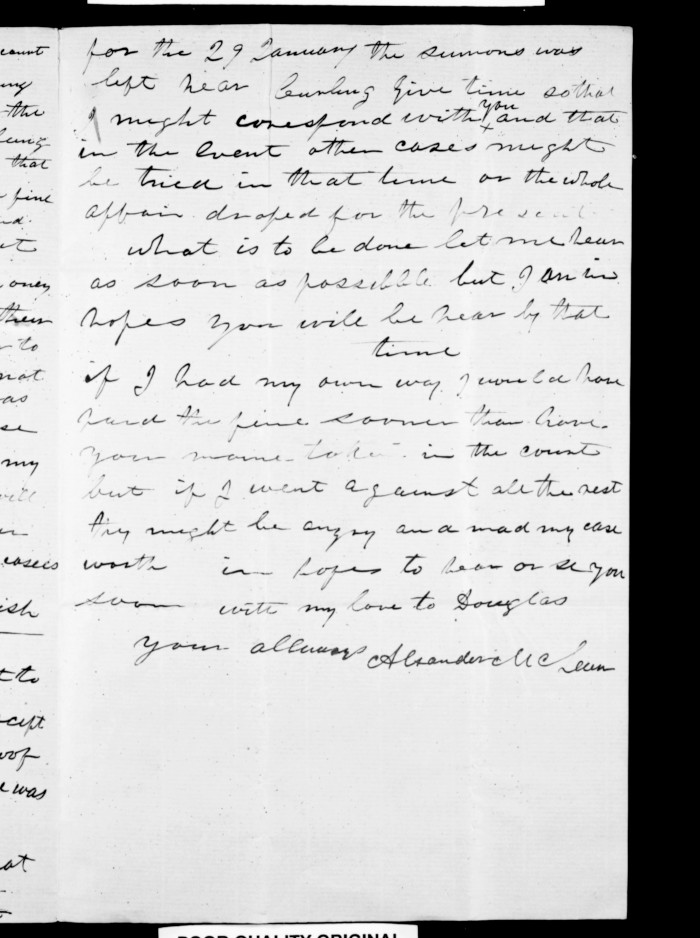 for the 29 January the sumons was
left hear Curling give time so that
I might corespond with you and that
in the Event other cases might
be tried in that time or the whole
affair droped for the present
what is to be done let me hear
as soon as possible but I am in
hopes you will be hear by that
time
if I had my own way I would have
paid the fine sooner than have
your name taken in the court
but if I went against all the rest
they might be angry and mad my case
worth in hopes to hear or se you
soon with my love to Douglas
your allways Alexander McLean
count
the
that
fine
oney
them
to
not
as
se
my
will
casees
ish
t to
cept
oof
was
at
POOR QUALITY ORIGINAL